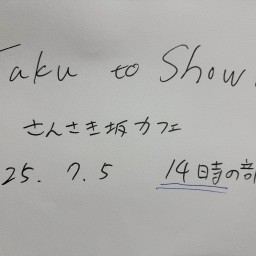 Taku to Show.
さんさき坂カフェ
25. 7. 5 14時の部